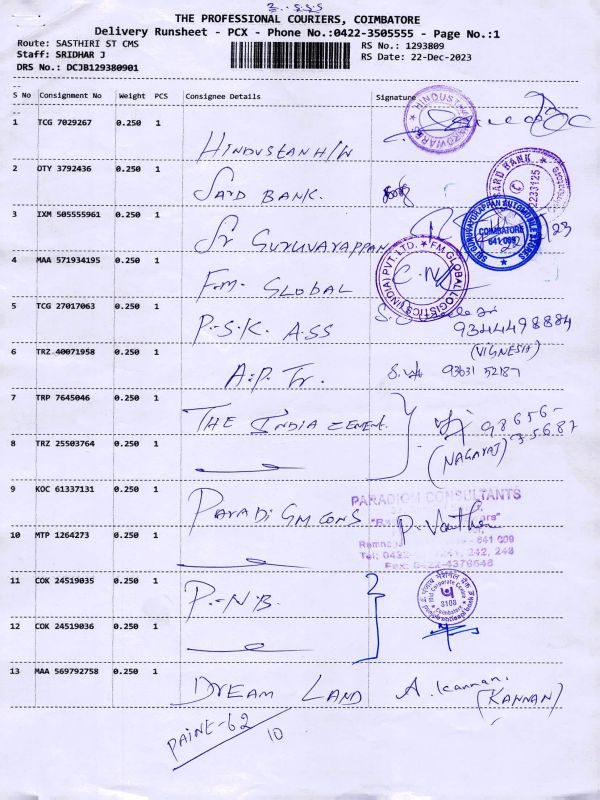 THE PROFESSIONAL COURIERS, COIMBATORE
Delivery Runsheet - PCX - Phone No.:0422-3505555 - Page No.:1
Route: SASTHIRI ST CMS
RS No.: 1293809
Staff: SRIDHAR J
RS Date: 22-Dec-2023
DRS No.: DCJB129380901
S No Consignment No Weight PCS Consignee Details Signature
1 TCG 7029267 0.250 1 HINDUSTAN H/W
HINDUSTAN HARDWARES
2 OTY 3792436 0.250 1 SARD BANK.
SARD BANK
2233125
3 IXM 505555961 0.250 1 Sr GURUVAYAPPAN
SRI GURUVAYURAPPAN AUTOMOBILE STORES
COIMBATORE
641 009
4 MAA 571934195 0.250 1 F.M. GLOBAL
FM GLOBAL LOGISTICS (INDIA) PVT. LTD.
5 TCG 27017063 0.250 1 P.S.K. ASS
9344498884
(VIGNESH)
6 TRZ 40071958 0.250 1 A.P. Tr.
93631 52187
7 TRP 7645046 0.250 1 THE INDIA CEMENT.
98656-
35687
(NAGARAJ)
8 TRZ 25503764 0.250 1
9 KOC 61337131 0.250 1 PARADIGM CONS
PARADIGM CONSULTANTS
10 MTP 1264273 0.250 1
641 009
Tel: 0422- 241, 242, 248
Fax: 0422-4379646
11 COK 24519035 0.250 1 P.N.B.
पंजाब नैशनल बैंक
Mid Corporate Centre
8108
Coimbatore
punjab national bank
12 COK 24519036 0.250 1
13 MAA 569792758 0.250 1 DREAM LAND A. Kannan.
(KANNAN)
PAINE-62
10